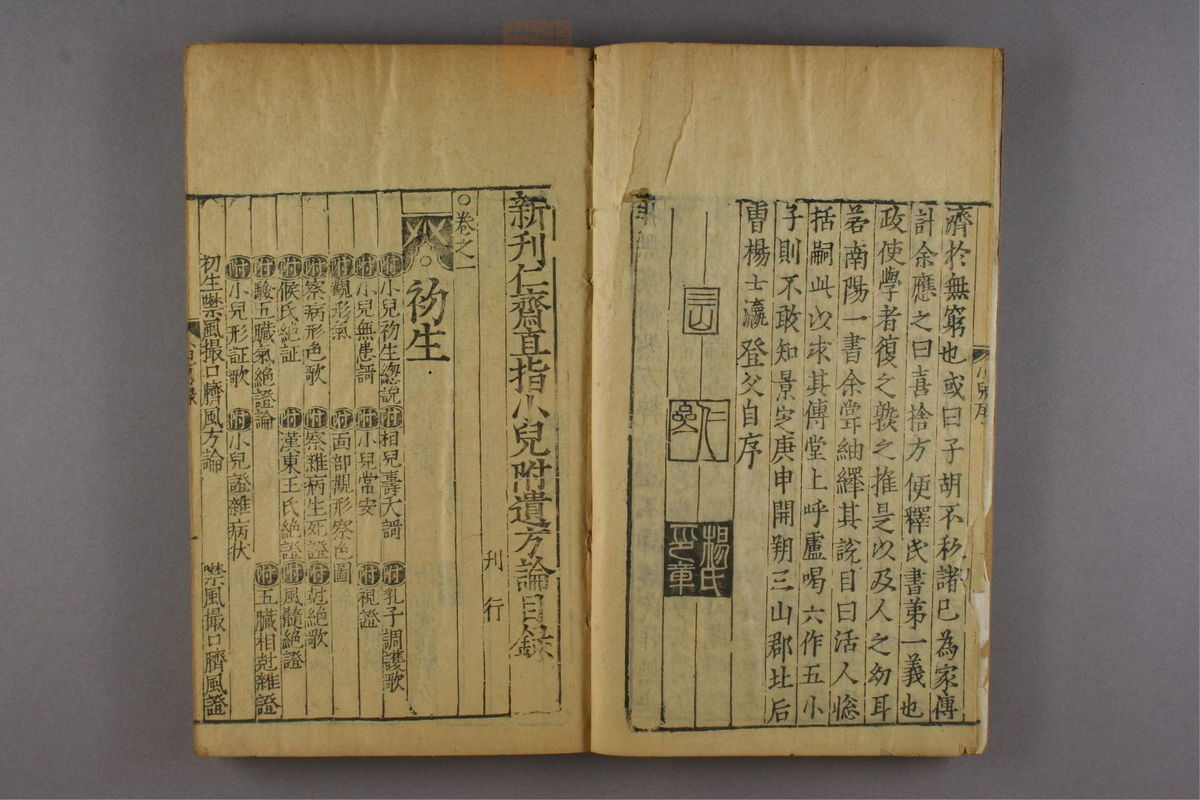 濟於無窮也或曰子胡不私諸己為家傳
計余應之曰喜捨方便釋氏書第一義也
政使學者復之敩之推是以及人之幼耳
若南陽一書余嘗紬繹其說目曰活人惣
括嗣此以求其傳堂上呼盧喝六作五小
子則不敢知景定庚申開朔三山郡址后
曹楊士瀛登父自序
三山
仁齋
楊氏印章
新刋仁齋直指小兒附遺方論目錄
刋行
○卷之一
初生
附小兒初生緫說 附相兒壽夭謌 附乳子調護歌
附小兒無患謌 附小兒常安 附視證
附觀形氣 附面部觀形察色圖
附察病形色歌 附察雜病生死證 附尅絕歌
附候氏絕証 附漢東王氏絕證 附風髓絕證
附驗五臟氣絕證論 附五臟相尅雜證
附小兒形証歌 附小兒證雜病狀
初生噤風撮口臍風方論 噤風撮口臍風證